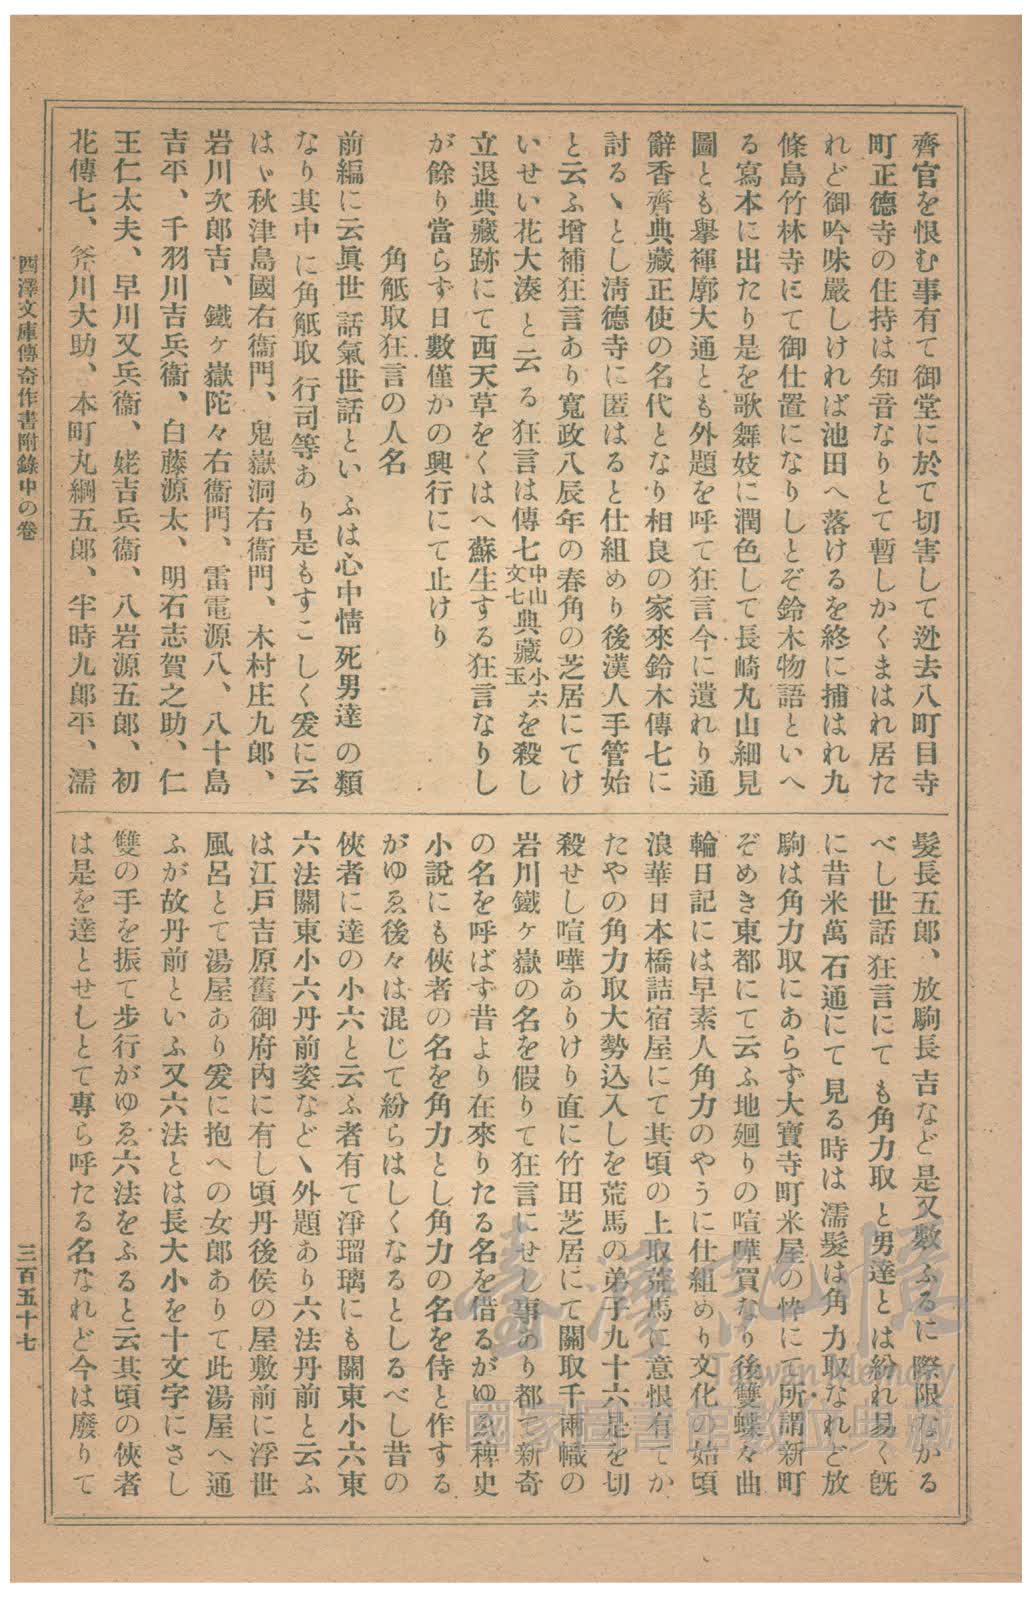 齊官を恨む事有て御堂に於て切害して迯去八町目寺
町正德寺の住持は知音なりとて暫しかくまはれ居た
れど御吟味嚴しければ池田へ落けるを終に捕はれ九
條島竹林寺にて御仕置になりしとぞ鈴木物語といへ
る寫本に出たり是を歌舞妓に潤色して長崎丸山細見
圖とも擧褌廓大通とも外題を呼て狂言今に遺れり通
辭香齊典藏正使の名代となり相良の家來鈴木傳七に
討るゝとし淸德寺に匿はると仕組めり後漢人手管始
と云ふ增補狂言あり寬政八辰年の春角の芝居にてけ
いせい花大湊と云る狂言は傳七中山文七典藏小六玉を殺し
立退典藏跡にて西天草をくはへ蘇生する狂言なりし
が餘り當らず日數僅かの興行にて止けり
角觝取狂言の人名
前編に云眞世話氣世話といふは心中情死男達の類
なり其中に角觝取行司等あり是もすこしく爰に云
はゞ秋津島國右衞門、鬼嶽洞右衞門、木村庄九郎、
岩川次郎吉、鐵ヶ嶽陀々右衞門、雷電源八、八十島
吉平、千羽川吉兵衞、白藤源太、明石志賀之助、仁
王仁太夫、早川又兵衞、姥吉兵衞、八岩源五郎、初
花傳七、斧川大助、本町丸綱五郎、半時九郎平、濡
髮長五郎、放駒長吉など是又數ふるに際限なかる
べし世話狂言にても角力取と男達とは紛れ易く旣
に昔米萬石通にて見る時は濡髮は角力取なれど放
駒は角力取にあらず大寶寺町米屋の忰にて所謂新町
ぞめき東都にて云ふ地廻りの喧嘩買なり後雙蝶々曲
輪日記には早素人角力のやうに仕組めり文化の始頃
浪華日本橋詰宿屋にて其頃の上取荒馬に意恨有てか
たやの角力取大勢込入しを荒馬の弟子九十六是を切
殺せし喧嘩ありけり直に竹田芝居にて關取千兩幟の
岩川鐵ヶ嶽の名を假りて狂言にせし事あり都て新奇
の名を呼ばず昔より在來りたる名を借るがゆゑ稗史
小說にも俠者の名を角力とし角力の名を侍と作する
がゆゑ後々は混じて紛らはしくなるとしるべし昔の
俠者に達の小六と云ふ者有て淨瑠璃にも關東小六東
六法關東小六丹前姿などゝ外題あり六法丹前と云ふ
は江戶吉原舊御府內に有し頃丹後侯の屋敷前に浮世
風呂とて湯屋あり爰に抱への女郎ありて此湯屋へ通
ふが故丹前といふ又六法とは長大小を十文字にさし
雙の手を振て步行がゆゑ六法をふると云其頃の俠者
は是を達とせしとて專ら呼たる名なれど今は廢りて
西澤文庫傳奇作書附錄中の卷
三百五十七
臺灣記憶
Taiwan Memory
國家圖書館數位典藏